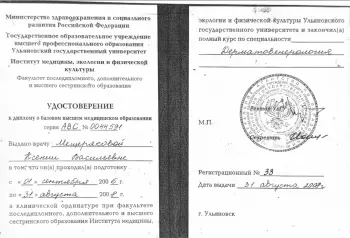 Министерство здравоохранения и социального
развития Российской Федерации
Государственное образовательное учреждение
высшего профессионального образования
Ульяновский государственный университет
Институт медицины, экологии и физической
культуры
Факультет последипломного, дополнительного
и высшего сестринского образования
УДОСТОВЕРЕНИЕ
к диплому о базовом высшем медицинском образовании
серия АВС № 0044591
Выдано врачу Мещеряковой
Ксении Васильевне
в том, что он(а) проходил(а) подготовку
с «01» сентября 2006 г.
по «31» августа 2008 г.
в клинической ординатуре при факультете
последипломного, дополнительного и высшего
сестринского образования Института медицины,
экологии и физической культуры Ульяновского
государственного университета и закончил(а)
полный курс по специальности
Дерматовенерология
М.П.
Секретарь
Регистрационный № 33
Дата выдачи 31 августа 2008 г.
г. Ульяновск